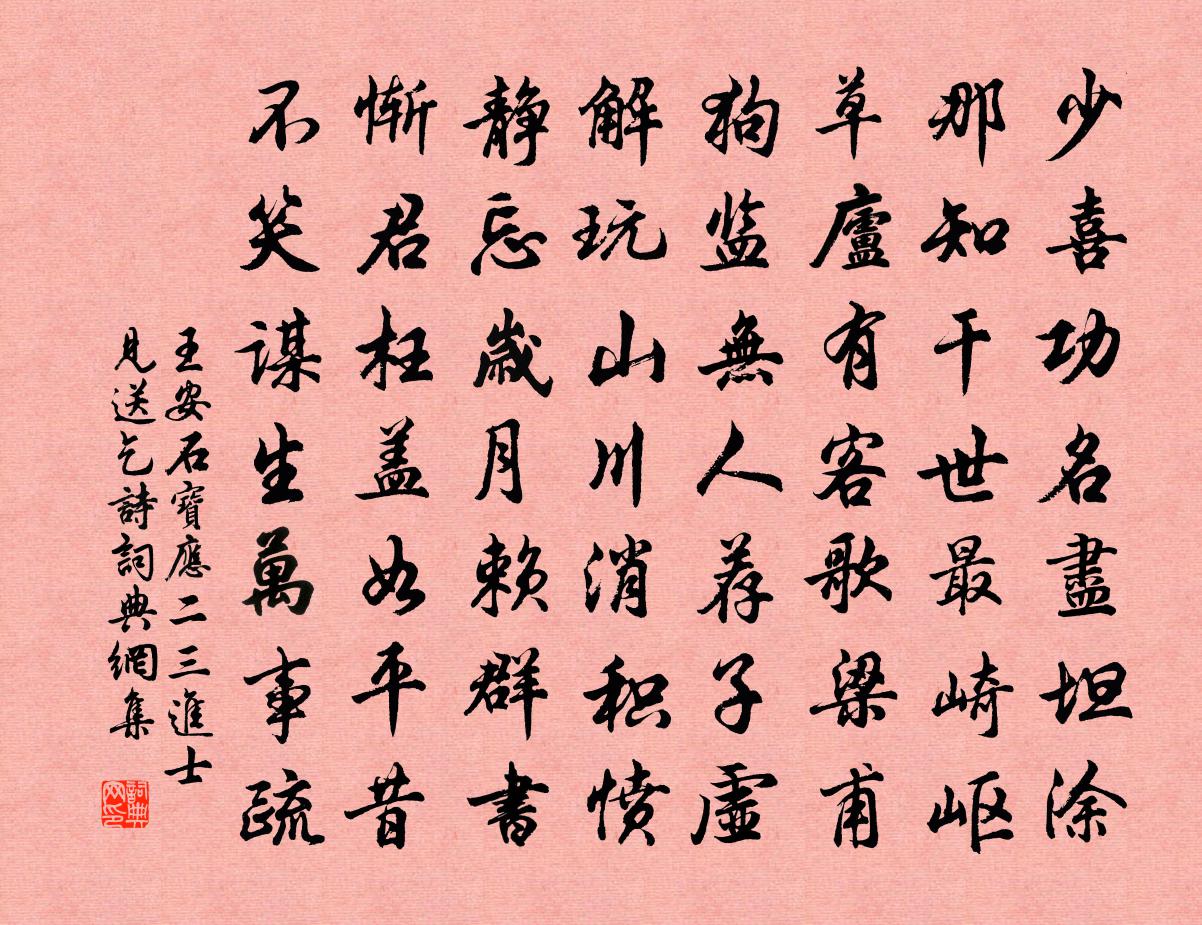 少喜功名盡坦涂
那知干世最崎岖
草廬有客歌梁甫
狗监無人荐子虛
解玩山川消积愤
静忘歲月赖群書
惭君枉盖如平昔
不笑谋生萬事疏
王安石寶應二三進士
見送乞詩詞典網集
詞典网印